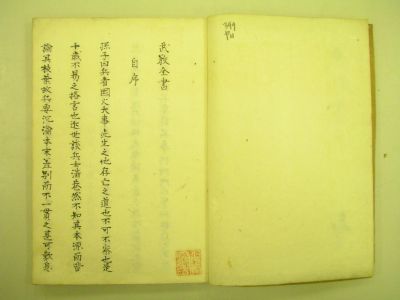 武教全書
自序
孫子曰兵者國之大事死生之地存亡之道也不可不察也是
千歳不易之格言也近世談兵者滿
然不知其本源而
論其枝葉故兵要沉淪本末差別而不一貫之甚可歎息